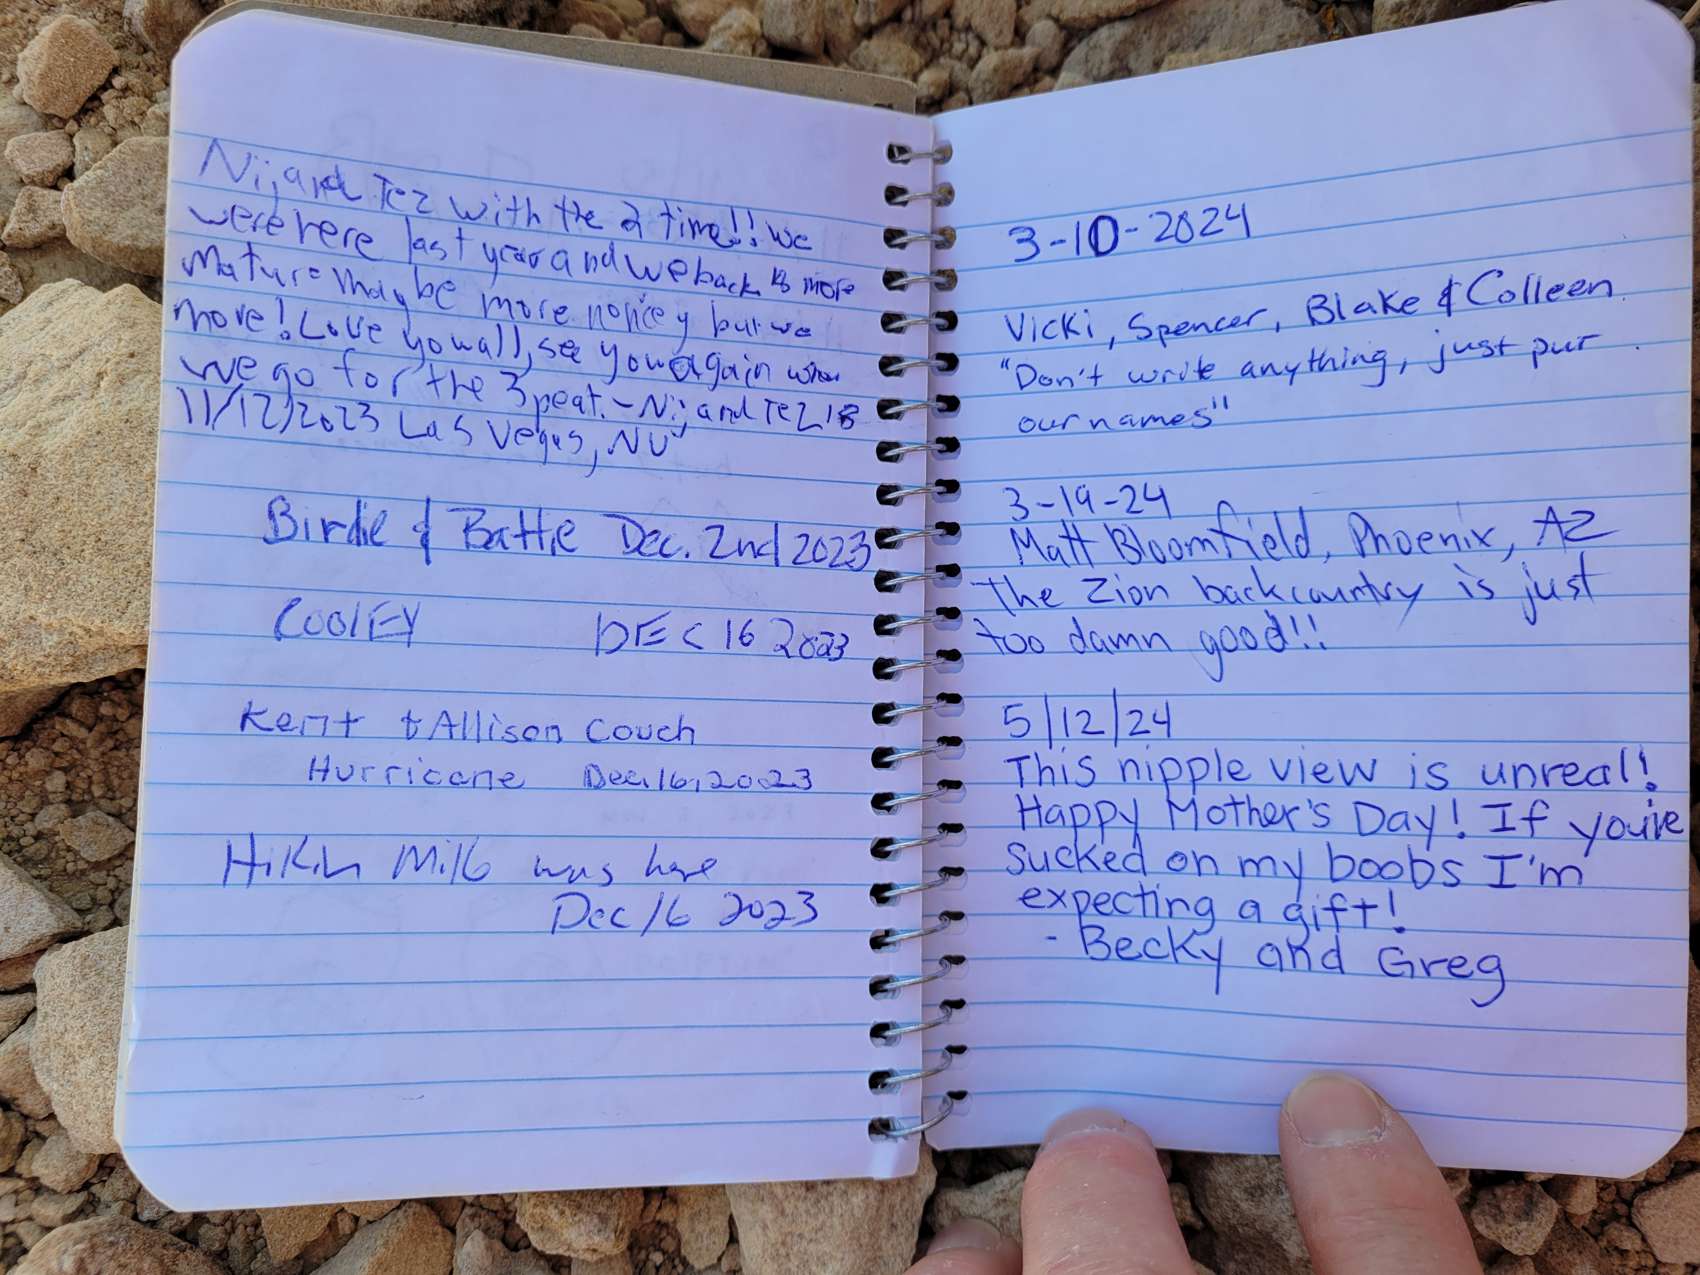 Nij and Tez with the 2 time!! we
were here last year and we back & more
mature maybe more horicey but we
more! Love you all, see you again when
we go for the 3peat. - Nij and Tez 18
11/12/2023 Las Vegas, NV
Birdie & Battie Dec. 2nd 2023
COOlEY DEC 16 2023
Kent & Allison Couch
Hurricane Dec. 16, 2023
HiKin Mi16 was here
Dec 16 2023
3-10-2024
Vicki, Spencer, Blake & Colleen
"Don't write anything, just pur
our names"
3-19-24
Matt Bloomfield, Phoenix, AZ
The Zion backcountry is just
too damn good!!
5/12/24
This nipple view is unreal!
Happy Mother's Day! If you've
sucked on my boobs I'm
expecting a gift!
- Becky and Greg